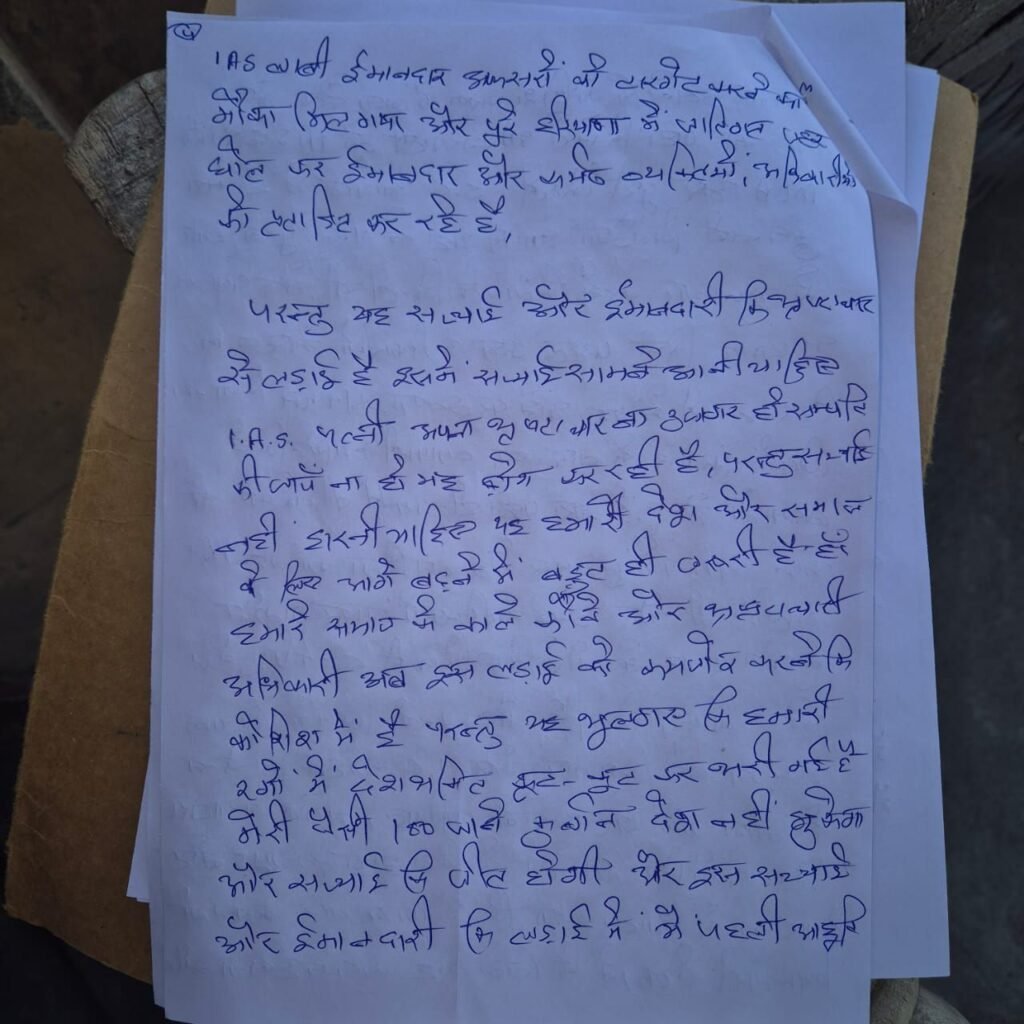 4
IAS लाबी ईमानदार अफसरों को टारगेट करने का
मौका मिल गया और पुरे हरियाणा में जातिगत
घोल कर ईमानदार और कर्मठ व्यक्तियों, अधिकारीयों
को प्रताडित कर रहे है,
परन्तु यह सच्चाई और ईमानदारी कि भ्रष्टाचार
से लड़ाई है इसमें सच्चाई सामने आनी चाहिए
I.A.S. पत्नी अपना भ्रष्टाचार का उजागर हो सम्पति
की जाँच ना हो यह ढोंग कर रही है, परन्तु सच्चाई
नही हारनी चाहिए यह हमारे देश और समाज
के लिए आगे बढ़ने में बहुत ही जरूरी है
हमारे समाज के काले और भ्रष्टाचारी
अधिकारी अब इस लड़ाई को कमजोर करने कि
कोशिश में है परन्तु यह भुलगए कि हमारी
रगों में देशभक्ति कूट-कूट कर भरी गई है
मेरी जैसी 100 जाने कुर्बान देश नही झुकेगा
और सच्चाई कि जीत होगी और इस सच्चाई
और ईमानदारी कि लड़ाई में मै पहली आहुति